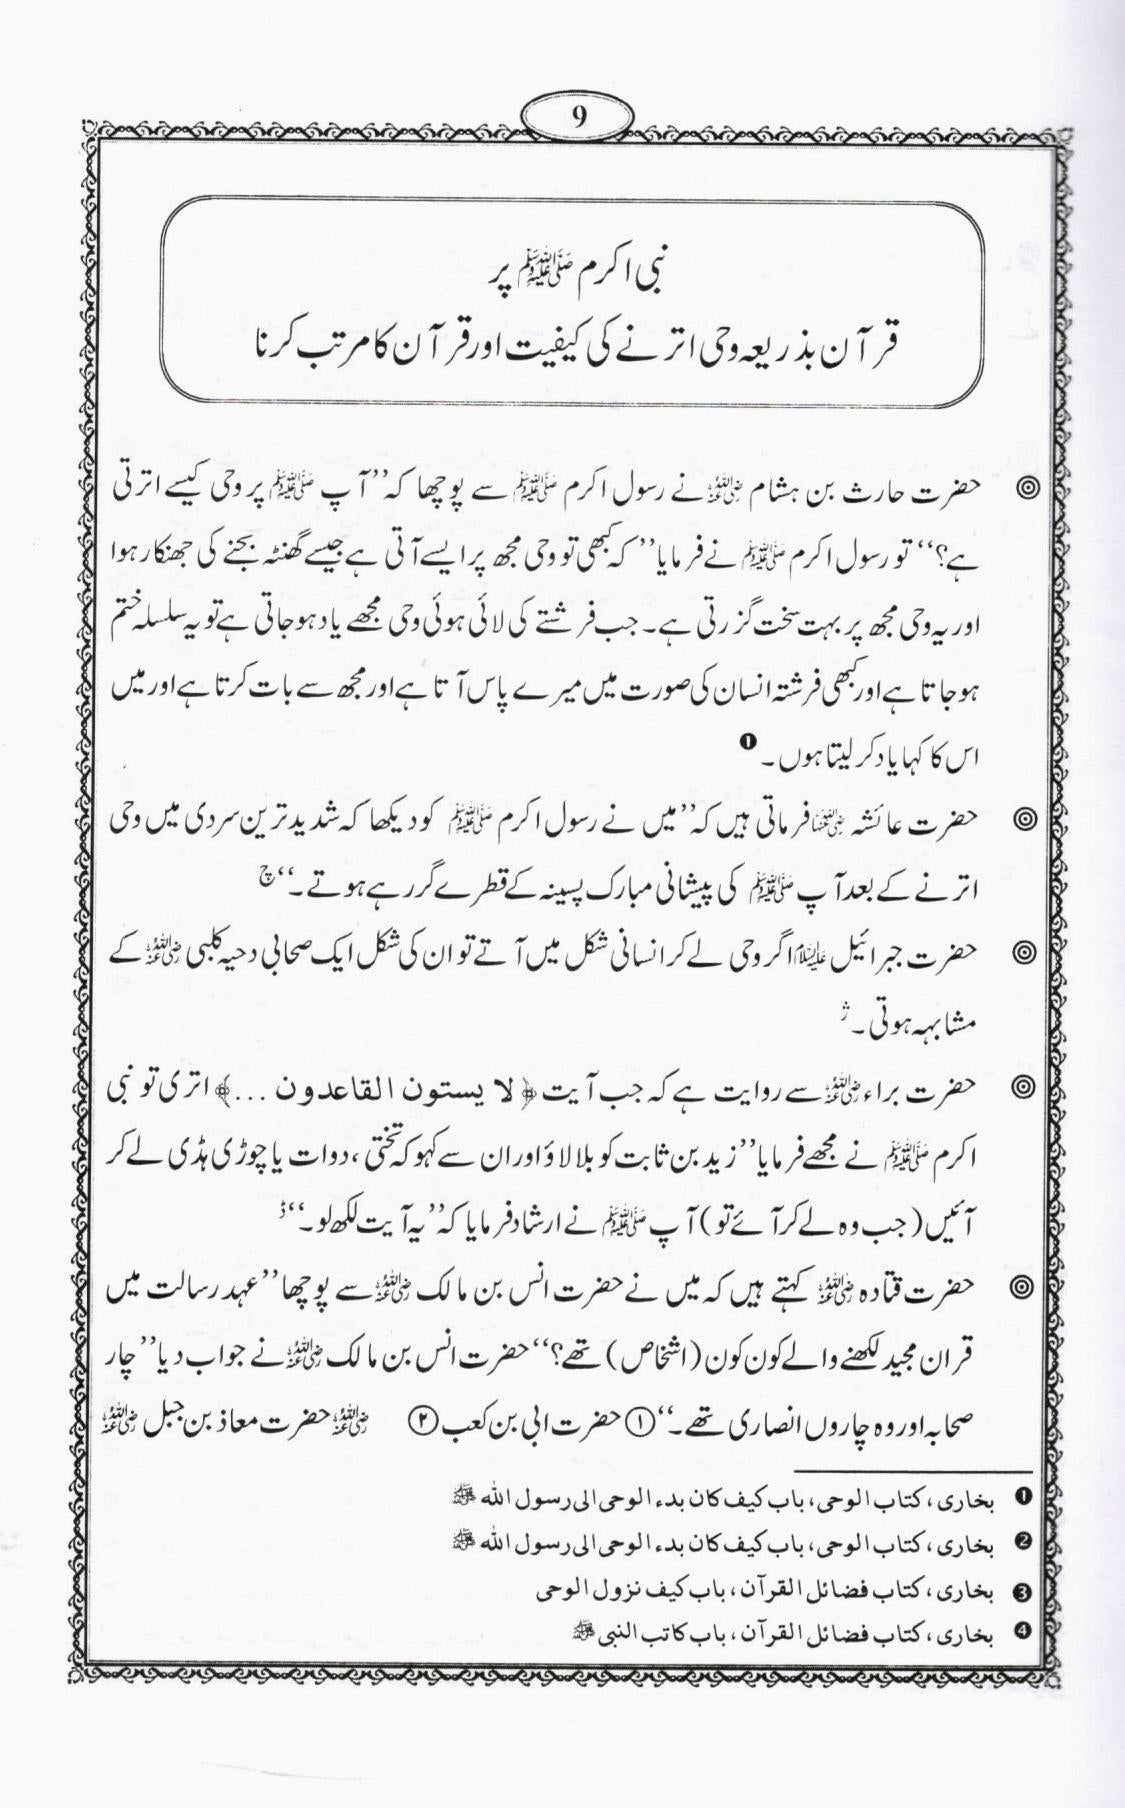 9
نبی اکرم ﷺ پر
قرآن بذریعہ وحی اترنے کی کیفیت اور قرآن کا مرتب کرنا
◎ حضرت حارث بن ہشام رضی اللہ عنہ نے رسول اکرم ﷺ سے پوچھا کہ ’’آپ ﷺ پر وحی کیسے اترتی
ہے؟‘‘ تو رسول اکرم ﷺ نے فرمایا ’’کہ کبھی تو وحی مجھ پر ایسے آتی ہے جیسے گھنٹہ بجنے کی جھنکار ہوا
اور یہ وحی مجھ پر بہت سخت گزرتی ہے۔ جب فرشتے کی لائی ہوئی وحی مجھے یاد ہو جاتی ہے تو یہ سلسلہ ختم
ہو جاتا ہے اور کبھی فرشتہ انسان کی صورت میں میرے پاس آتا ہے اور مجھ سے بات کرتا ہے اور میں
اس کا کہا یاد کر لیتا ہوں۔ ❶
◎ حضرت عائشہ رضی اللہ عنہا فرماتی ہیں کہ ’’میں نے رسول اکرم ﷺ کو دیکھا کہ شدید ترین سردی میں وحی
اترنے کے بعد آپ ﷺ کی پیشانی مبارک پسینہ کے قطرے گر رہے ہوتے۔‘‘ چ
◎ حضرت جبرائیل علیہ السلام اگر وحی لے کر انسانی شکل میں آتے تو ان کی شکل ایک صحابی دحیہ کلبی رضی اللہ عنہ کے
مشابہہ ہوتی۔ ژ
◎ حضرت براء رضی اللہ عنہ سے روایت ہے کہ جب آیت ﴿لا یستون القاعدون ...﴾ اتری تو نبی
اکرم ﷺ نے مجھے فرمایا ’’زید بن ثابت کو بلا لاؤ اور ان سے کہو کہ تختی، دوات یا چوڑی ہڈی لے کر
آئیں (جب وہ لے کر آئے تو) آپ ﷺ نے ارشاد فرمایا کہ ’’یہ آیت لکھ لو۔‘‘ ڈ
◎ حضرت قتادہ رضی اللہ عنہ کہتے ہیں کہ میں نے حضرت انس بن مالک رضی اللہ عنہ سے پوچھا ’’عہد رسالت میں
قران مجید لکھنے والے کون کون (اشخاص) تھے؟‘‘ حضرت انس بن مالک رضی اللہ عنہ نے جواب دیا ’’چار
صحابہ اور وہ چاروں انصاری تھے۔‘‘ ① حضرت ابی بن کعب ② رضی اللہ عنہ حضرت معاذ بن جبل رضی اللہ عنہ
❶ بخاری، کتاب الوحی، باب کیف کان بدء الوحی الی رسول اللہ ﷺ
❷ بخاری، کتاب الوحی، باب کیف کان بدء الوحی الی رسول اللہ ﷺ
❸ بخاری، کتاب فضائل القرآن، باب کیف نزول الوحی
❹ بخاری، کتاب فضائل القرآن، باب کاتب النبی ﷺ